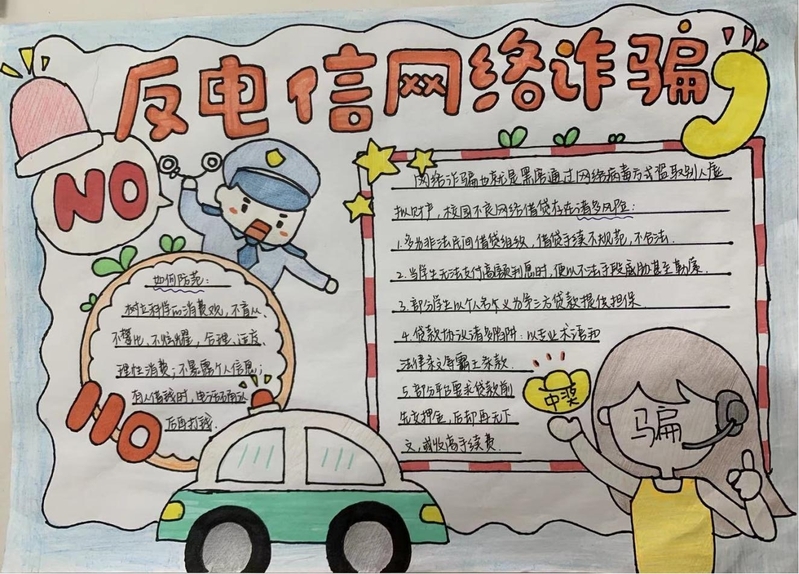 反电信网络诈骗
NO
网络诈骗也就是黑客通过网络病毒方式盗取别人虚
拟财产,校园不良网络借贷存在诸多风险:
1.多为非法民间借贷组织,借贷手续不规范,不合法.
2.当学生无法支付高额利息时,便以不法手段威胁甚至勒索.
3.部分学生以个人名义为第三方贷款提供担保.
4.贷款协议诸多陷阱:以专业术语和
法律条文等霸王条款.
5.部分平台要求贷款前
先交押金,后却再无下
文,或收高手续费.
如何防范:
树立科学的消费观,不盲从、
不攀比、不炫耀,合理、适度、
理性消费;不暴露个人信息;
有人借钱时,电话确认
后再打钱.
110
中奖
骗